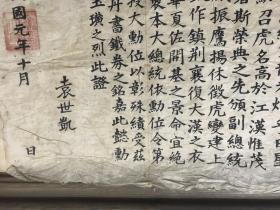 召虎名高於江漢惟茂
斯榮典之先頒副總統
振鷹揚休徵虎變建上
作鎮荊襄復大漢之衣
華夏佐開基之景命宜絕
本大總統依勳位令第
授大勳位以彰殊績受茲
丹書鐵券之銘嘉此懿勳
五璜之烈此證
袁世凱
國元年十月 日